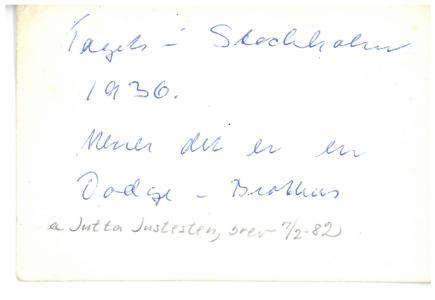 Taget i Stockholm
1936.
Mener det er en
Dodge - Brothers
a Jutta Justesten, brev 7/2-82